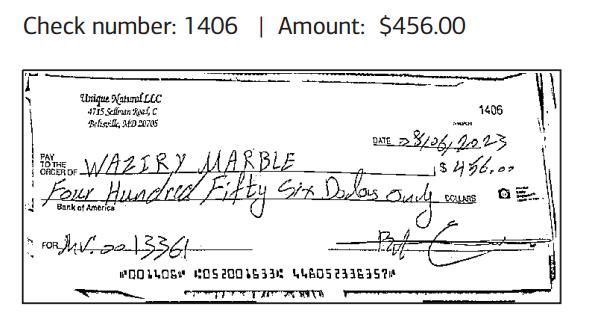 Check number: 1406 | Amount: $456.00
Unique Natural LLC
4715 Sellman Road, C
Beltsville, MD 20705
1406
DATE 08/06/2023
PAY TO THE ORDER OF WAZIRY MARBLE $ 456.00
Four Hundred Fifty Six Dolas Only DOLLARS
Bank of America
FOR INV. 0013361
⑈001406⑈ ⑆052001633⑆ 446052336357⑈